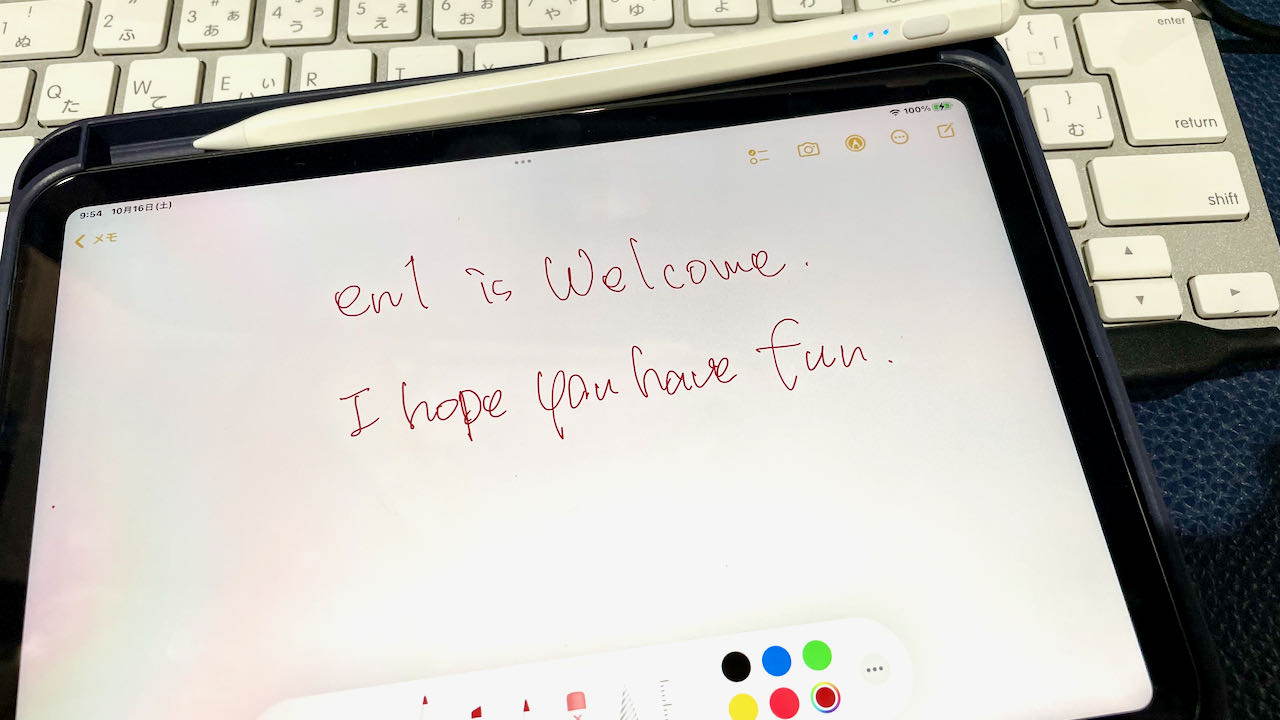 ! 1 ぬ
" 2 ふ
# ぁ 3 あ
$ ぅ 4 う
% ぇ 5 え
& ぉ 6 お
' ゃ 7 や
ゅ ゆ
ょ よ
わ
Q た
W て
E ぃ い
R
T
Y
enter
return
{ 「
} 」 む
shift
9:54 10月16日(土)
100%
メモ
en1 is Welcome.
I hope you have fun.